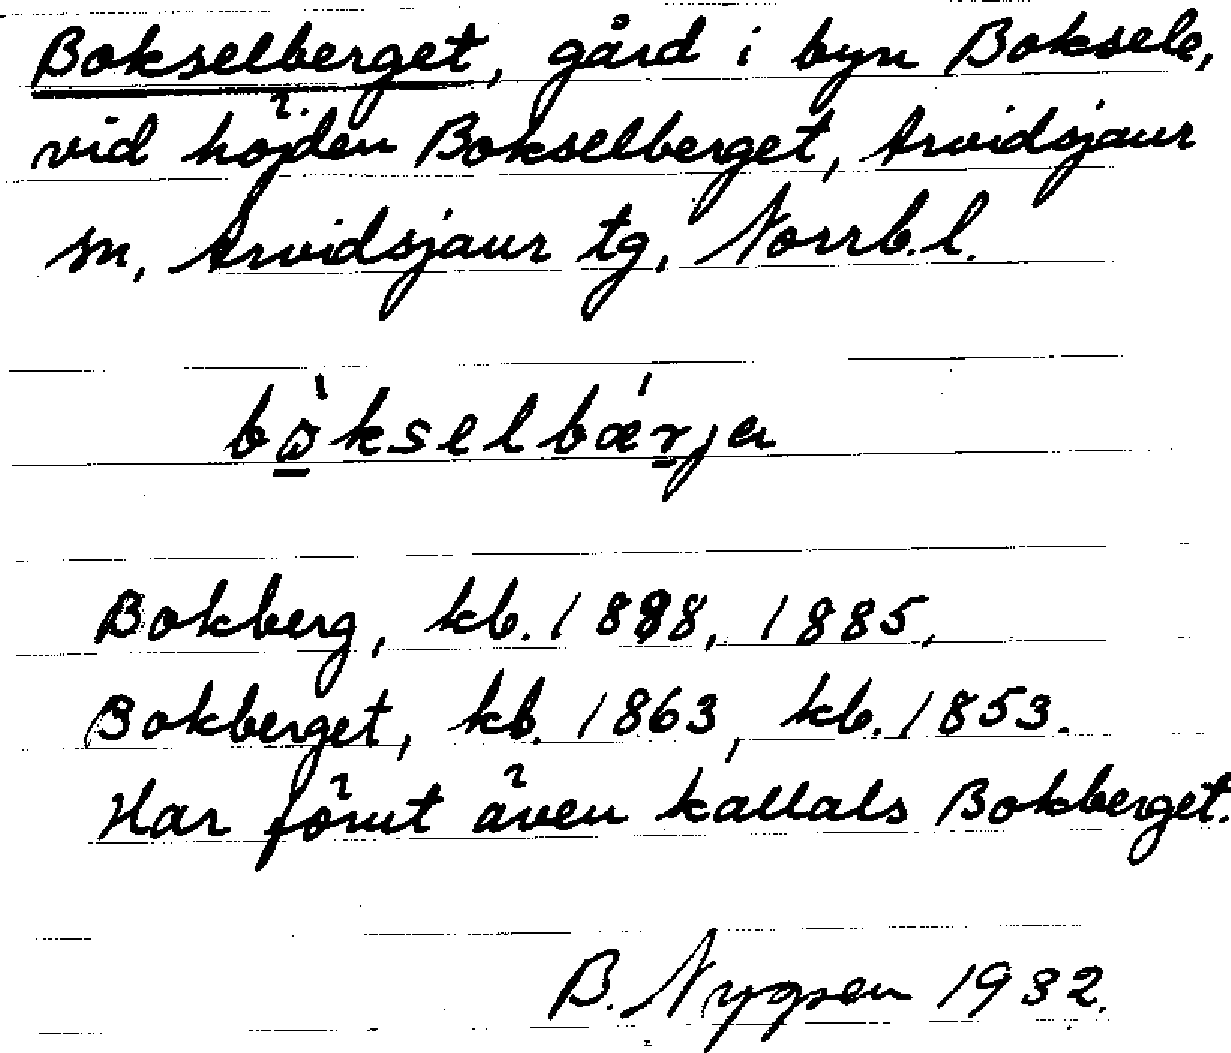 Bokselberget, gård i byn Boksele,
vid höjden Bokselberget, Arvidsjaur
sn, Arvidsjaur tg, Norrb.l.
bò̱kselbǽrja
Bokberg, kb. 1898, 1885,
Bokberget, kb. 1863, kb. 1853.
Har förut även kallats Bokberget.
B. Nygren 1932.